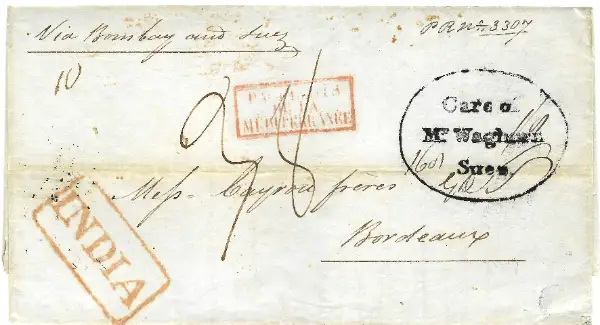 Via Bombay and Suez
PRNo. 3307
10
PAQUEBOTS
DE LA
MÉDITERRANÉE
Care of
Mr Waghorn
Suez.
Messrs Cayrou frères
Bordeaux
INDIA